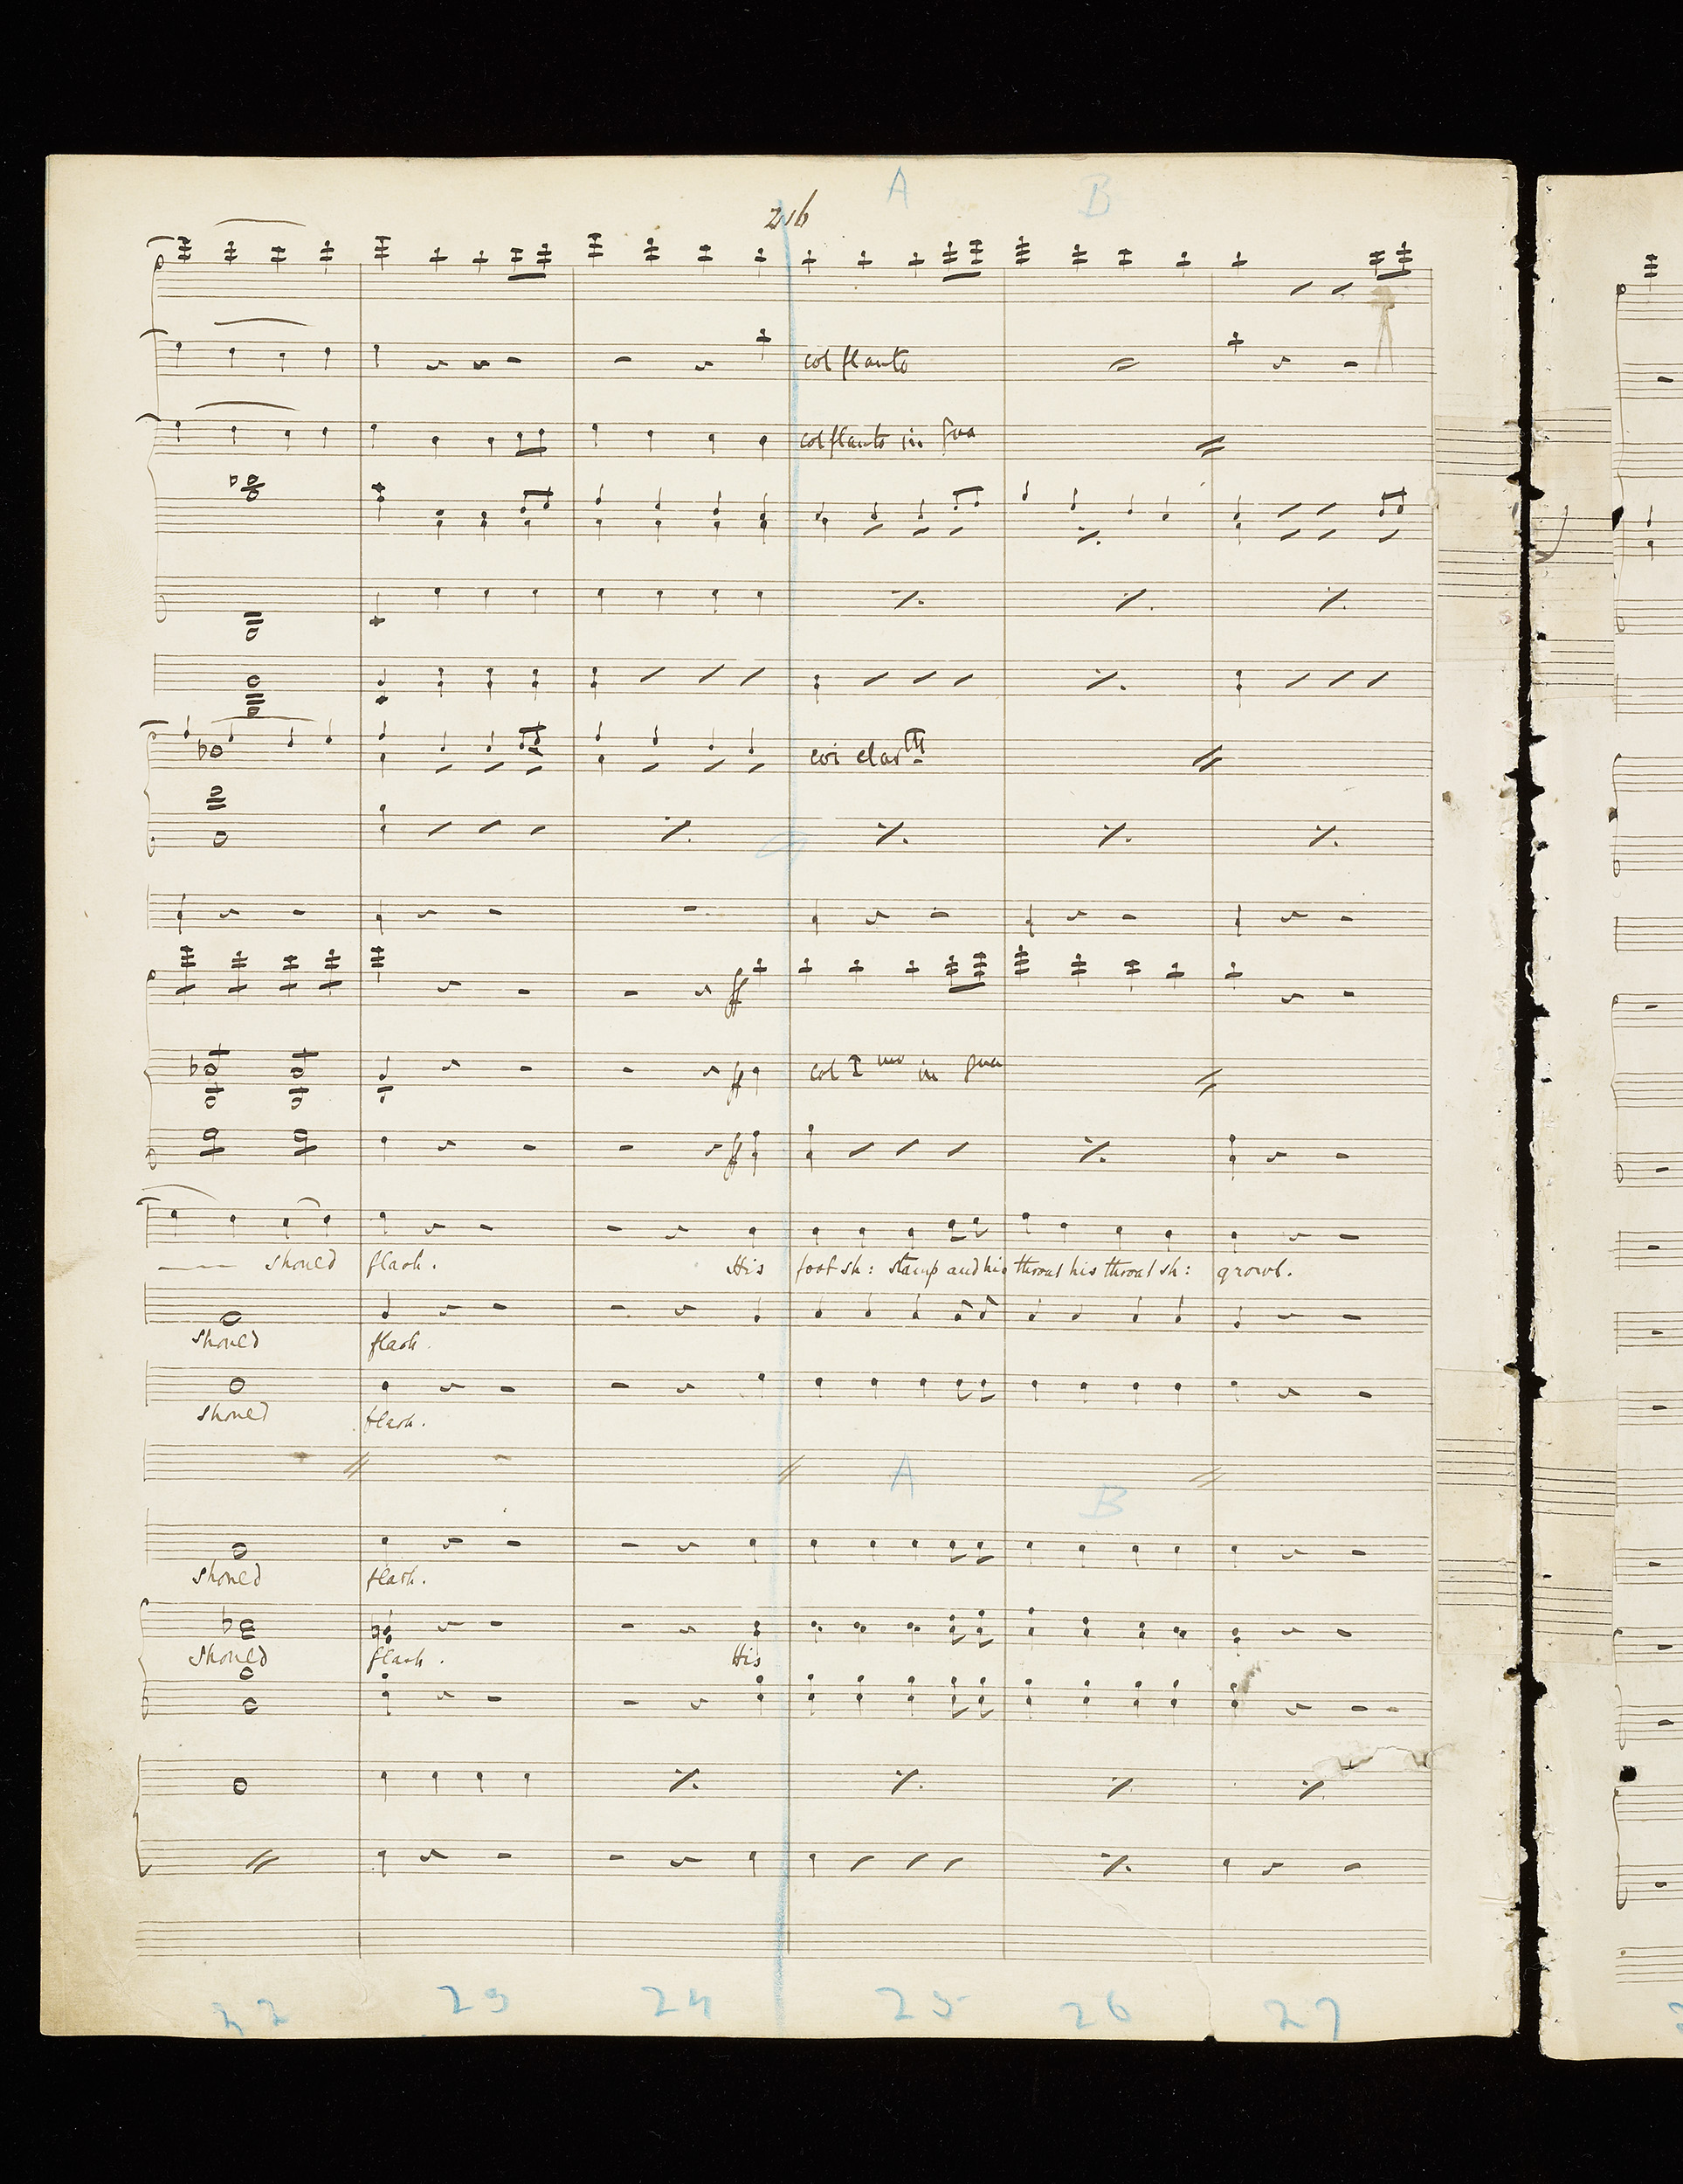 A B
216
col flauto
col flauto in 8va
coi clartti
ff
col Imo in 8va
ff
ff
should flash. His foot sh: stamp and his throat his throat sh: growl.
should flash.
should flash.
A B
should flash.
should flash. His
22 23 24 25 26 27